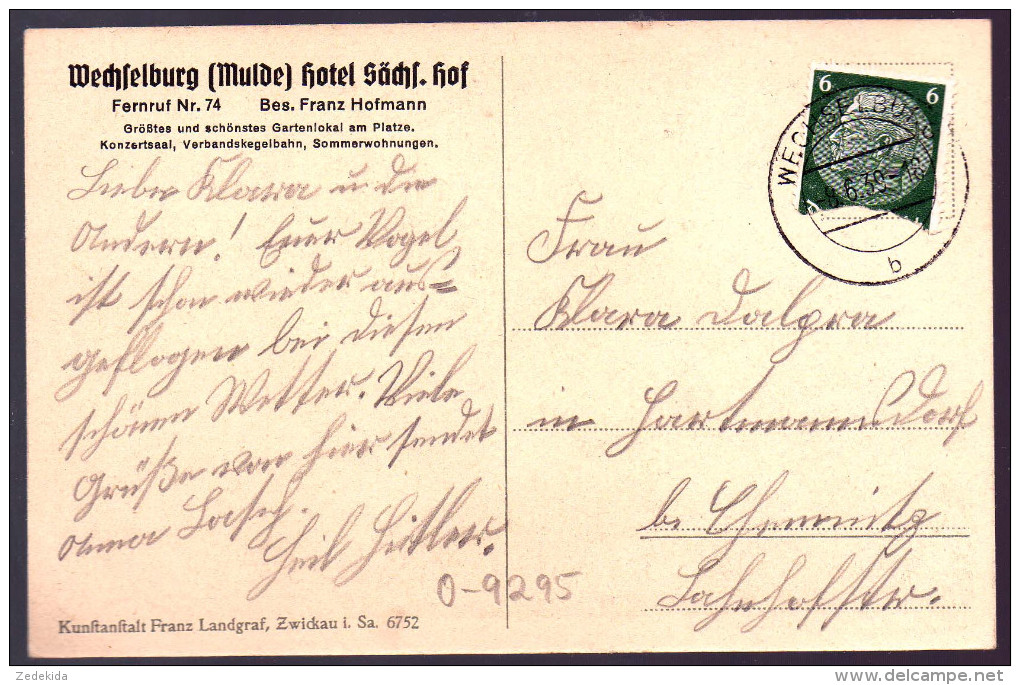 Wechselburg (Mulde) Hotel Sächs. Hof
Fernruf Nr. 74 Bes. Franz Hofmann
Größtes und schönstes Gartenlokal am Platze.
Konzertsaal, Verbandskegelbahn, Sommerwohnungen.
Liebe Klara u. die
Andern! Euer Vogel
ist schon wieder aus=
geflogen bei diesen
schönen Wetter. Viele
Grüße von hier sendet
Anna
Heil Hitler.
0-9295
Kunstanstalt Franz Landgraf, Zwickau i. Sa. 6752
6 6
WECHSELBURG
8.6.39-18
b
Frau
Klara Dalpra
in Hartmannsdorf
b. Chemnitz
Bahnhofstr.
Zedekida
delcampe.net